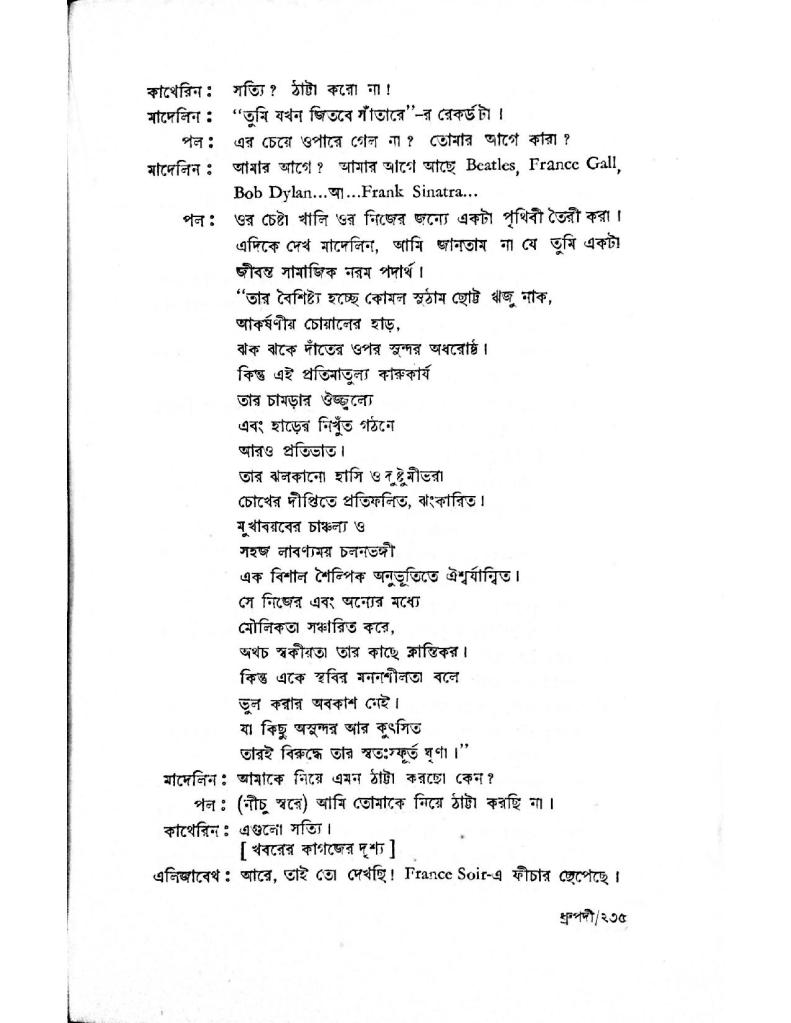 কাথেরিন : সত্যি? ঠাট্টা করো না!
মাদেলিন : “তুমি যখন জিতবে সাঁতারে”-র রেকর্ডটা ।
পল : এর চেয়ে ওপারে গেল না? তোমার আগে কারা?
মাদেলিন : আমার আগে? আমার আগে আছে Beatles, France Gall,
Bob Dylan...আ...Frank Sinatra...
পল : ওর চেষ্টা খালি ওর নিজের জন্যে একটা পৃথিবী তৈরী করা ।
এদিকে দেখ মাদেলিন, আমি জানতাম না যে তুমি একটা
জীবন্ত সামাজিক নরম পদার্থ ।
“তার বৈশিষ্ট্য হচ্ছে কোমল সুঠাম ছোট্ট ঋজু নাক,
আকর্ষণীয় চোয়ালের হাড়,
ঝক ঝকে দাঁতের ওপর সুন্দর অধরোষ্ঠ ।
কিন্তু এই প্রতিমাতুল্য কারুকার্য
তার চামড়ার ঔজ্জ্বল্যে
এবং হাড়ের নিখুঁত গঠনে
আরও প্রতিভাত ।
তার ঝলকানো হাসি ও দুষ্টুমীভরা
চোখের দীপ্তিতে প্রতিফলিত, ঝংকারিত ।
মুখাবয়বের চাঞ্চল্য ও
সহজ লাবণ্যময় চলনভঙ্গী
এক বিশাল শৈল্পিক অনুভূতিতে ঐশ্বর্যান্বিত ।
সে নিজের এবং অন্যের মধ্যে
মৌলিকতা সঞ্চারিত করে,
অথচ স্বকীয়তা তার কাছে ক্লান্তিকর ।
কিন্তু একে স্থবির মননশীলতা বলে
ভুল করার অবকাশ নেই ।
যা কিছু অসুন্দর আর কুৎসিত
তারই বিরুদ্ধে তার স্বতঃস্ফূর্ত ঘৃণা ।”
মাদেলিন : আমাকে নিয়ে এমন ঠাট্টা করছো কেন?
পল : (নীচু স্বরে) আমি তোমাকে নিয়ে ঠাট্টা করছি না ।
কাথেরিন : এগুলো সত্যি ।
[ খবরের কাগজের দৃশ্য ]
এলিজাবেথ : আরে, তাই তো দেখছি! France Soir-এ ফীচার ছেপেছে ।
ধ্রুপদী/২৩৫